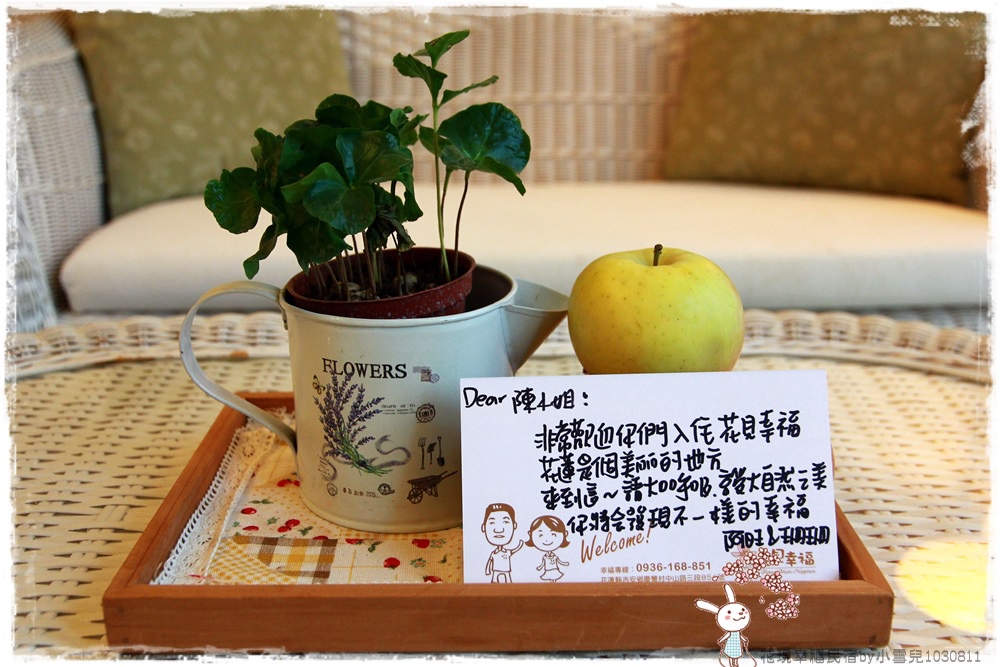 FLOWERS
Dear 陳小姐:
非常歡迎你們入住花見幸福
花蓮是個美麗的地方
來到這~請大口呼吸.發大自然之美
你將會發現不一樣的幸福
阿旺&珊珊
Welcome!
見幸福
幸福專線:0936-168-851
花蓮縣吉安鄉慶豐村中山路三段
花現幸福民宿by小雪兒1030811